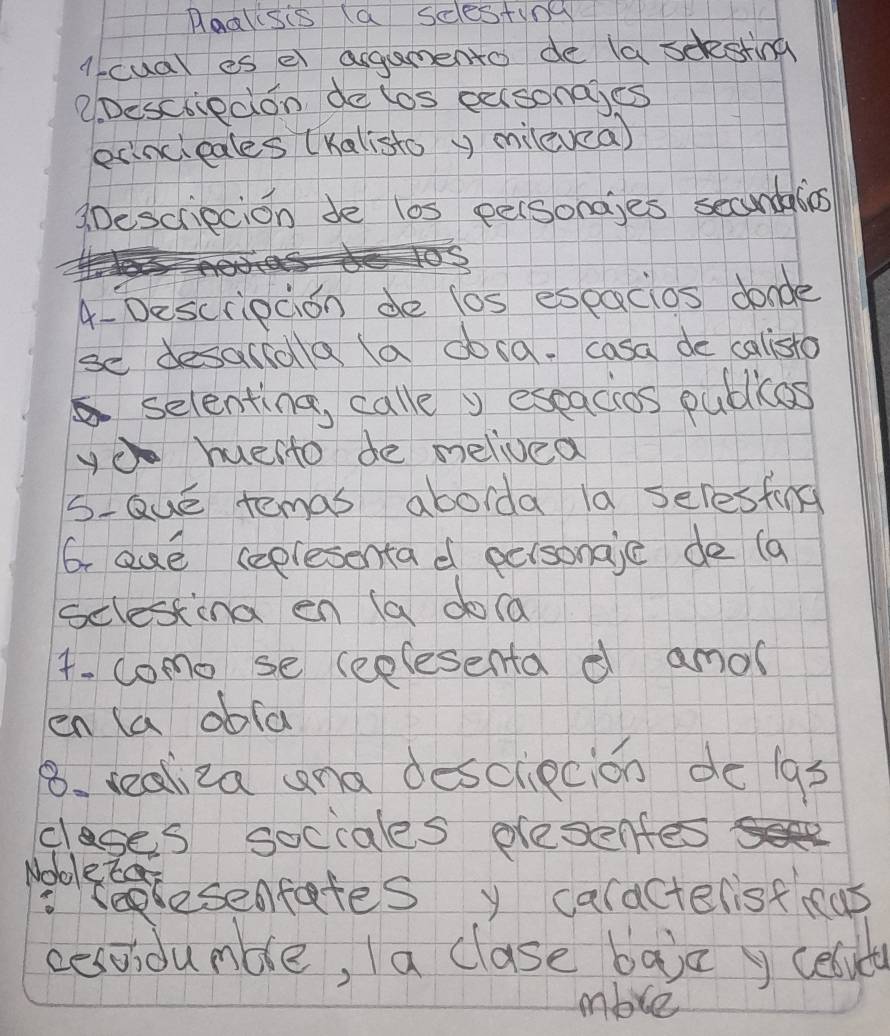 Analisis la selestina
1-cual es el argumento de la selestina
2.Descripción de los personajes
principales (Kalisto y milevea)
3.Descripción de los personajes secundarios
4-Descripción de los espacios donde
se desarrolla la obra. casa de calisto
selentina, calle y espacios publicos
y huerto de melivea
5-Qué temas aborda la serestina
6- qué representa el personaje de la
selestina en la obra
7- como se representa el amor
en la obra
8- realiza una descripción de las
clases sociales presentes
Nobleza:
: representates y caracteristicas
cesvidumbre, la clase baja y cervidu
mbre